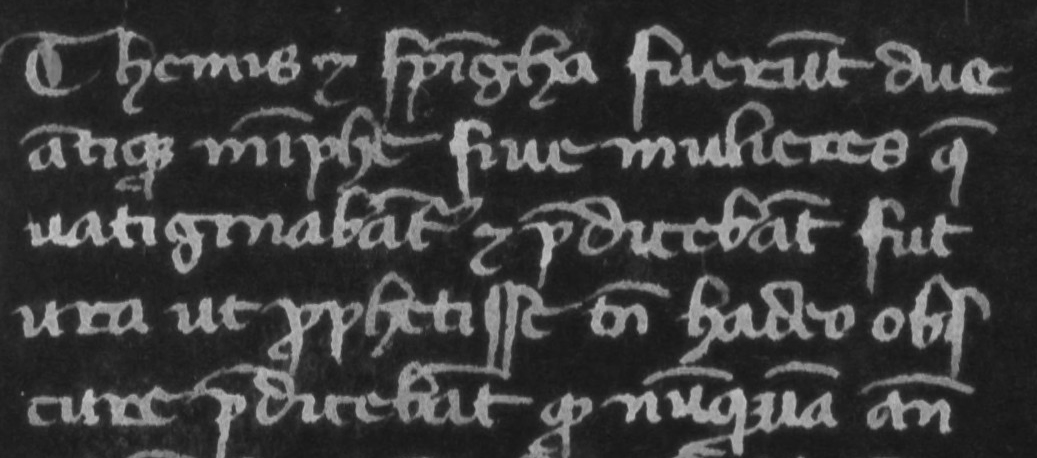 Themis ⁊ spīgha fuerūt due
ātiqꝫ nīphe siue mulieres q̄
uatiginabāt ⁊ p̄dicebāt fut
ura ut ꝓphetisse tn̄ hadeo obſ
cure p̄dicebāt ꝙ nūqᷓuā an̄